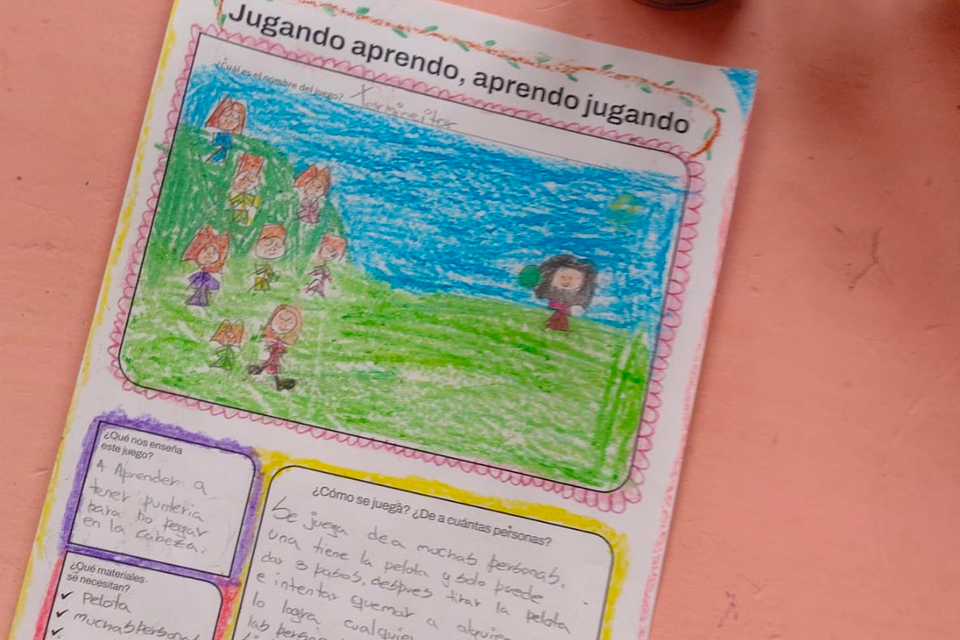 Jugando aprendo, aprendo jugando
¿Cuál es el nombre del juego?
¿Qué nos enseña
este juego?
A Aprender a
tener punteria
para no pegar
en la cabeza.
¿Cómo se juega? ¿De a cuántas personas?
Se juega de a muchas personas,
una tiene la pelota y solo puede
dar 3 pasos, despues tirar la pelota
e intentar quemar a alguien
lo logra cualquie
las perso
¿Qué materiales
se necesitan?
✓ Pelota
✓ muchas persona
✓